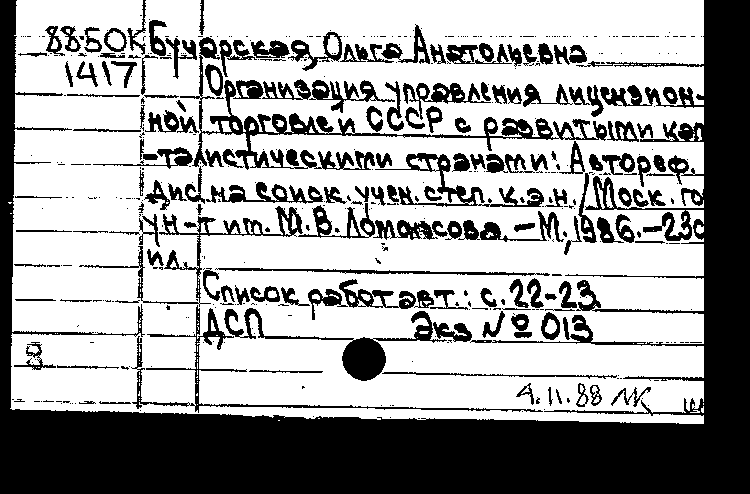 88-5OK Бучарская, Ольга Анатольевна
1417 Организация управления лицензион-
ной торговлей СССР с развитыми кап
-талистическими странами: Автореф.
дис. на соиск. учен. степ. к.э.н. / Моск. го
ун-т им. М.В. Ломоносова. — М., 1986. — 23с
ил.
Список работ авт.: с. 22-23.
ДСП Экз № 013
8
4.11.88